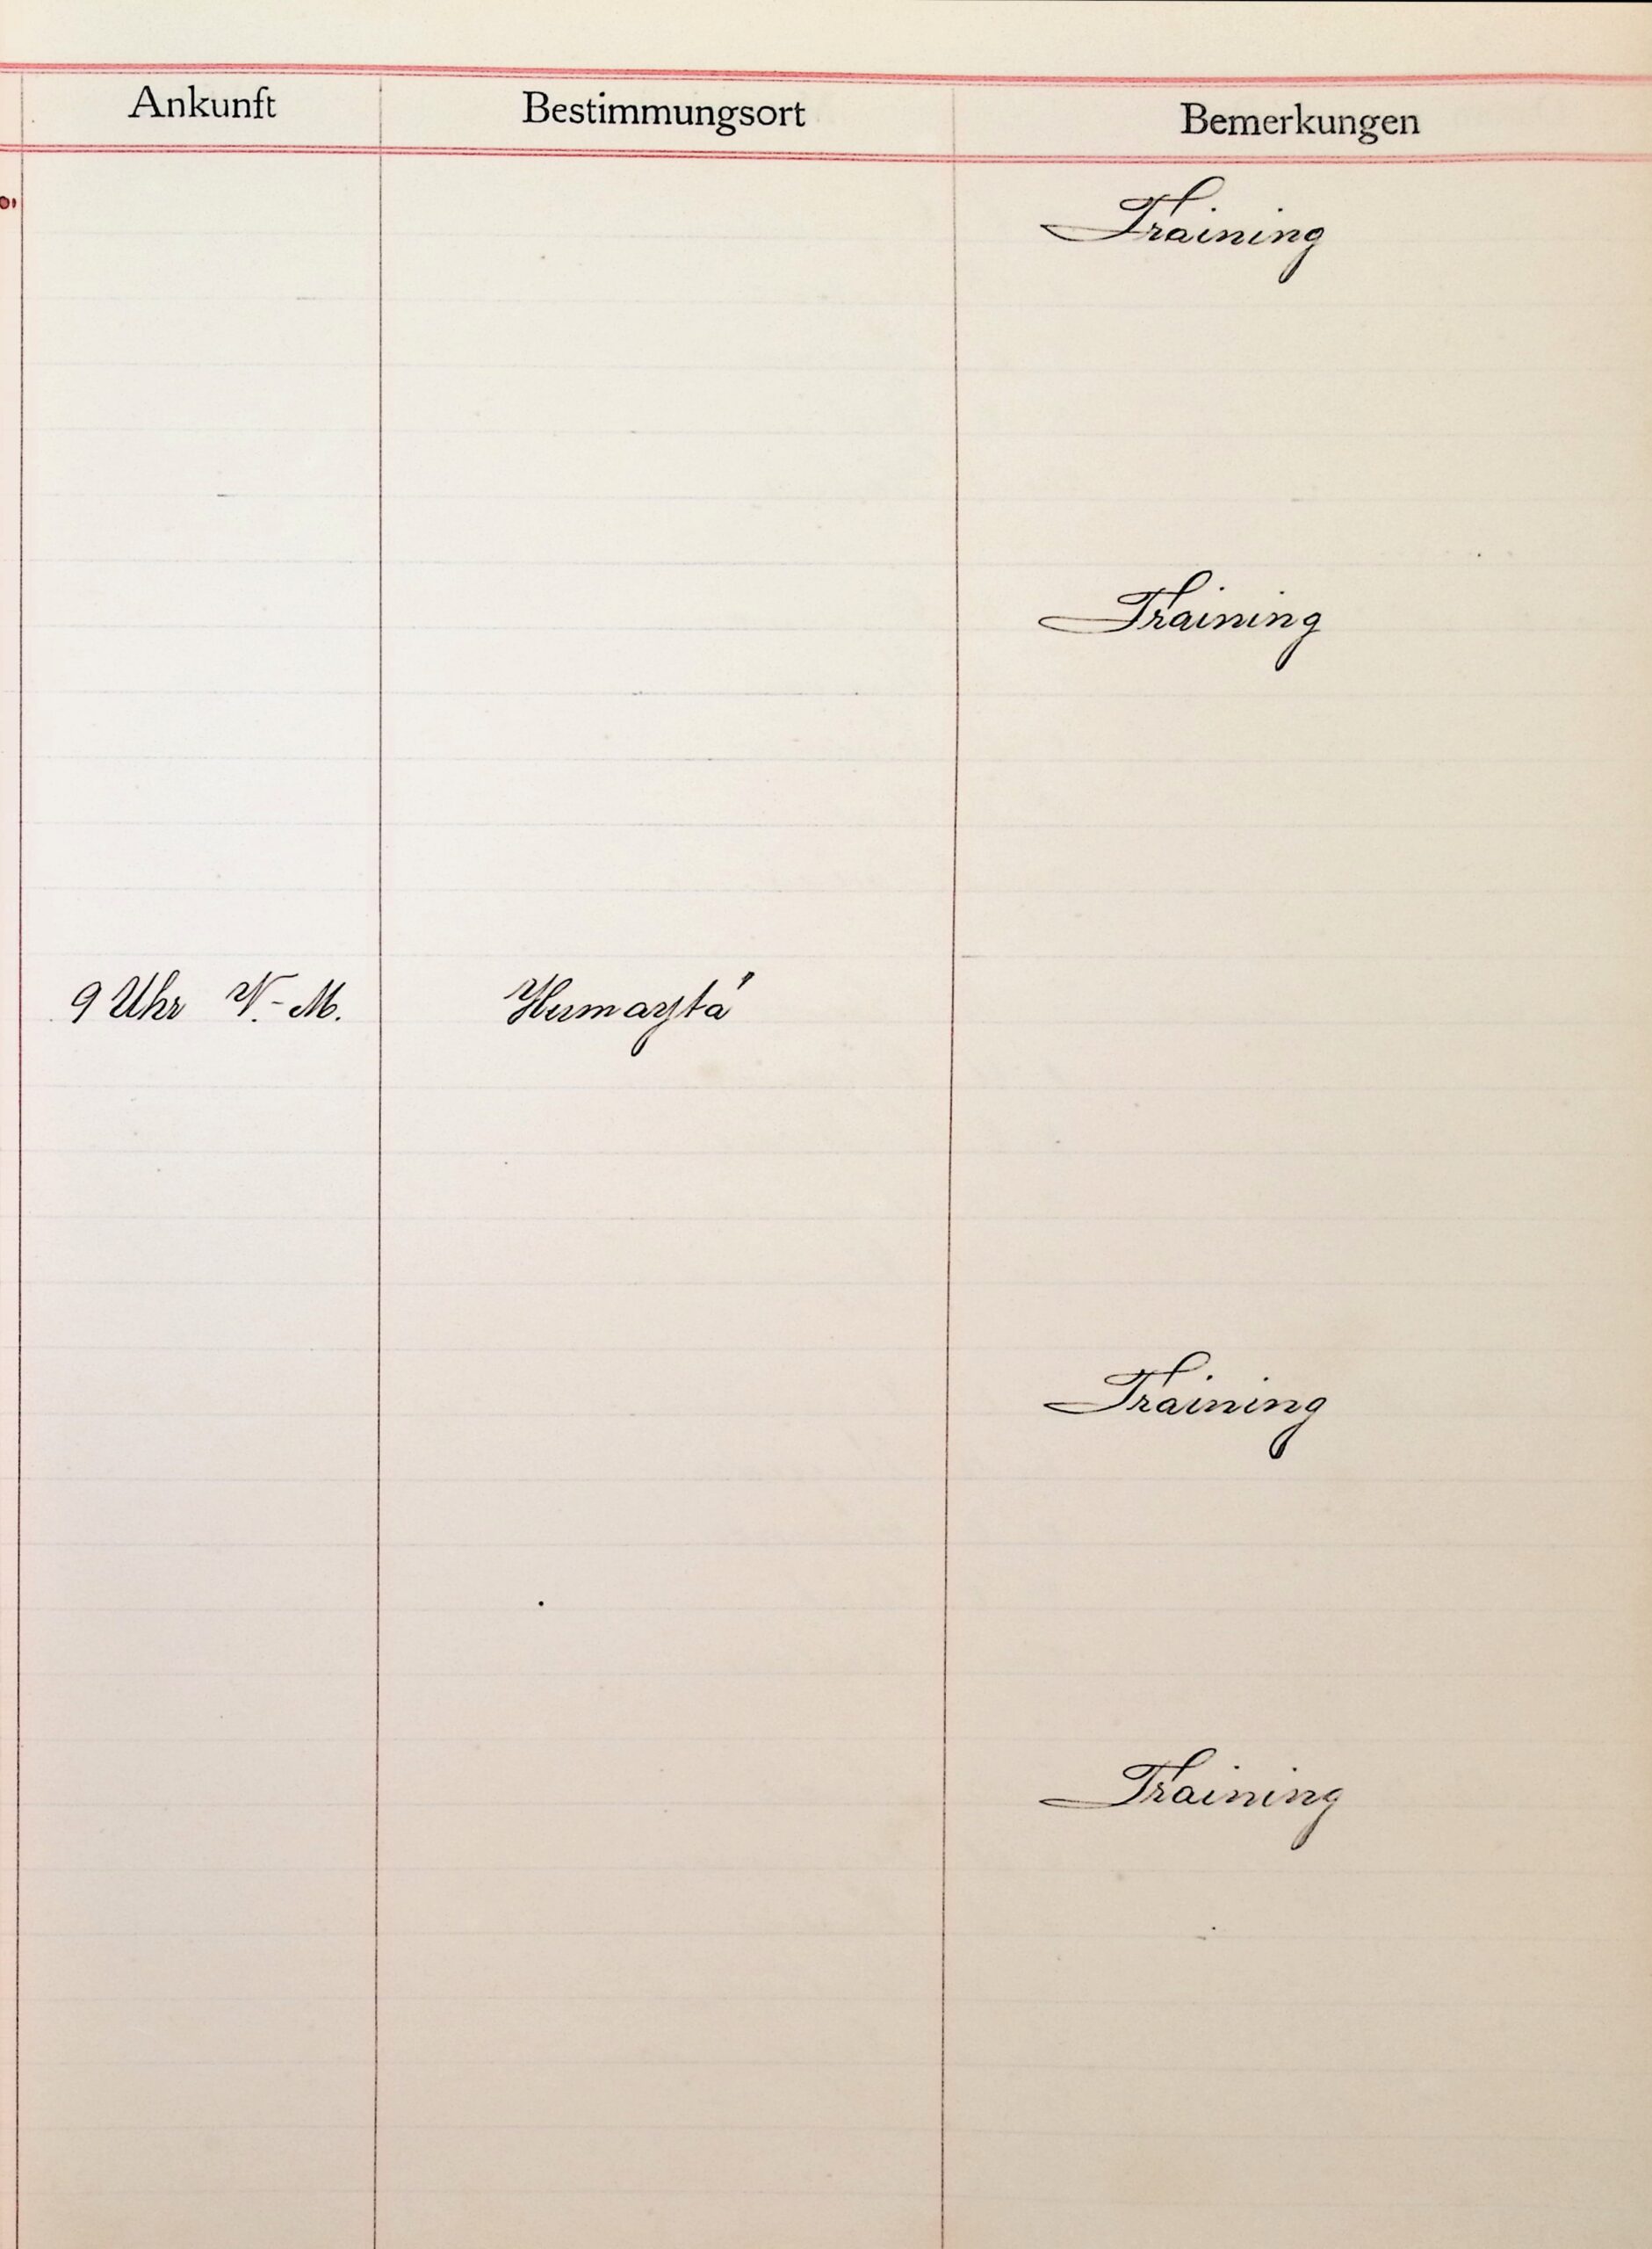 Ankunft Bestimmungsort Bemerkungen
Training
Training
9 Uhr V.-M. Humaytá
Training
Training